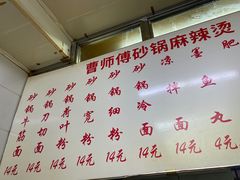 曹师傅砂锅麻辣烫
砂锅牛筋面 14元
砂锅刀切面 14元
砂锅荷叶粉 14元
砂锅宽粉 14元
砂锅细粉 14元
砂锅冷面 14元
凉拌面 14元
墨鱼丸 4元
肥